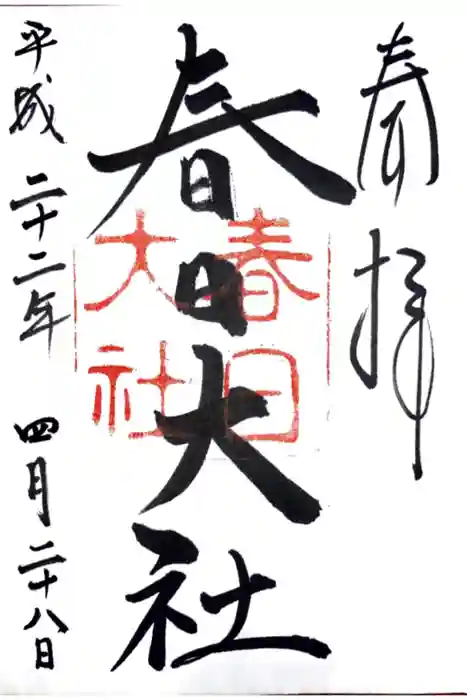 奉拝
春日大社
春日
大社
平成二十二年 四月二十八日